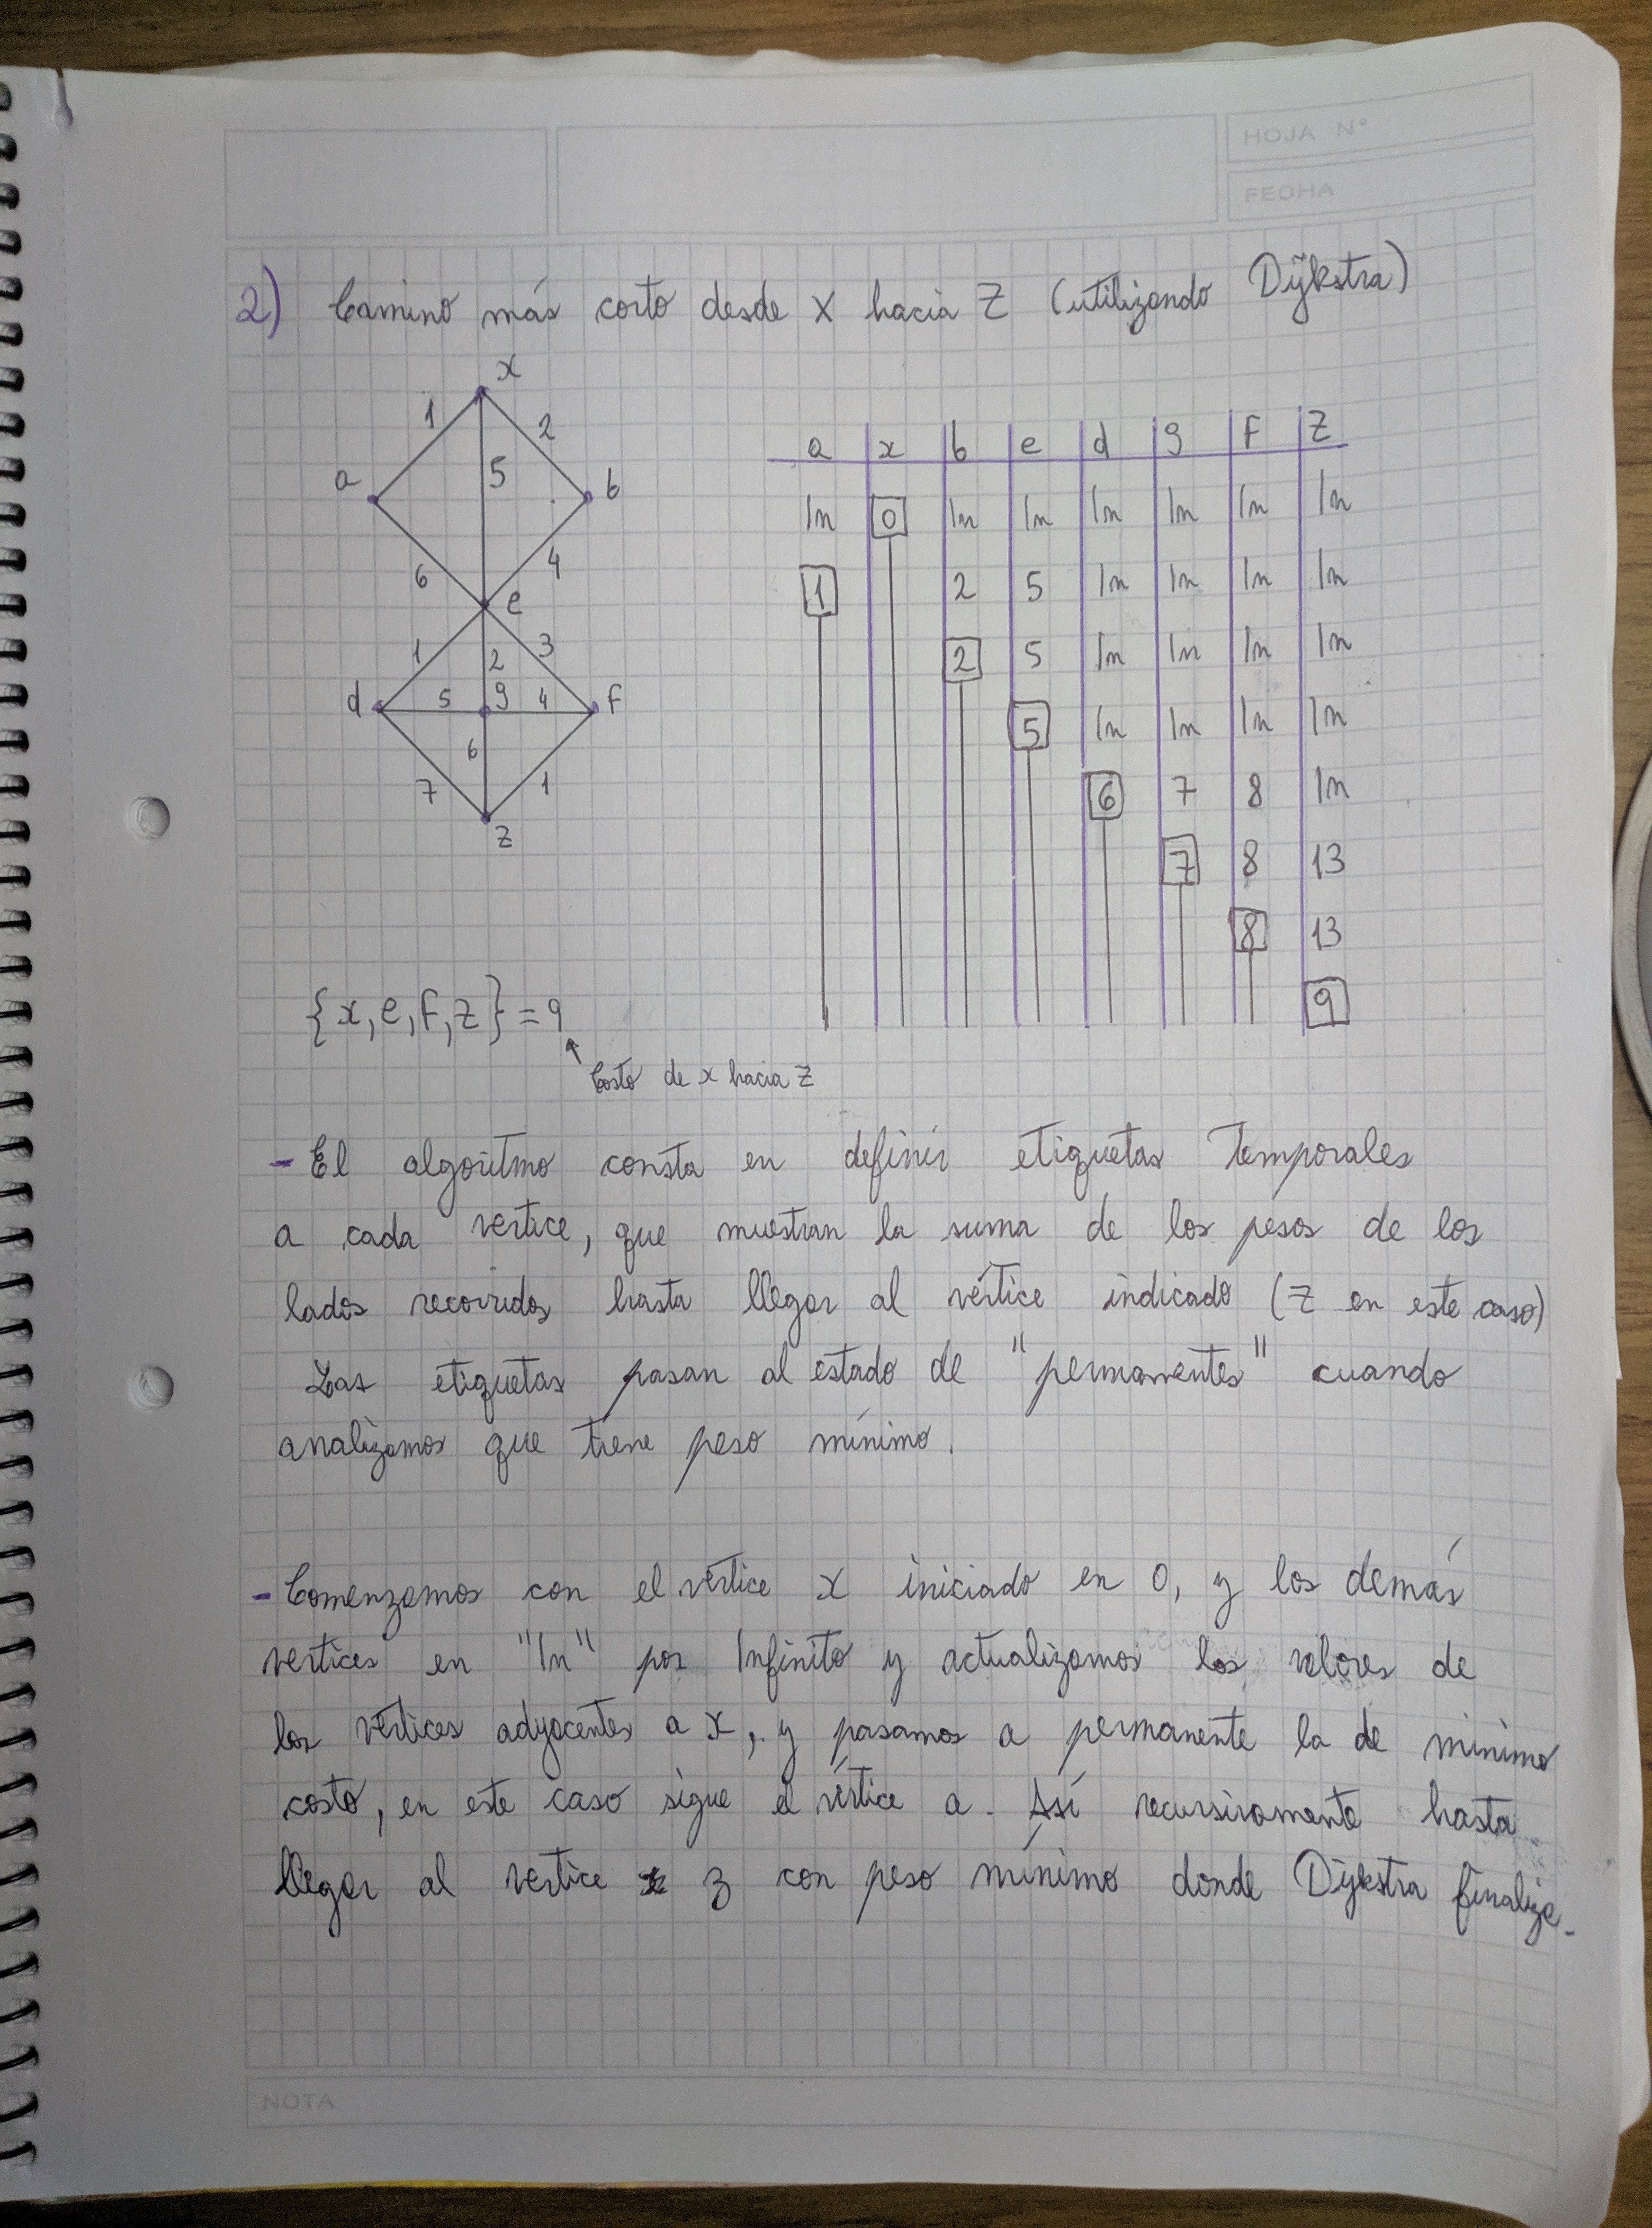 HOJA N°
FECHA
2) Camino más corto desde x hacia Z (utilizando Dijkstra)
x
1
2
a
5
b
6
4
e
1
2
3
d
5
g
4
f
6
7
1
z
a x b e d g f Z
In 0 In In In In In In
1 2 5 In In In In
2 5 In In In In
5 In In In In
6 7 8 In
7 8 13
8 13
9
{x, e, f, z} = 9
Costo de x hacia Z
- El algoritmo consta en definir etiquetas temporales
a cada vertice, que muestran la suma de los pesos de los
lados recorridos hasta llegar al vértice indicado (Z en este caso)
Las etiquetas pasan al estado de "permanentes" cuando
analizamos que tiene peso mínimo.
- Comenzamos con el vértice x iniciado en 0, y los demás
vertices en "In" por Infinito y actualizamos los valores de
los vértices adyacentes a x, y pasamos a permanente la de minimo
costo, en este caso sigue el vértice a. Así recursivamente hasta
llegar al vertice z con peso mínimo donde Dijkstra finaliza.
NOTA